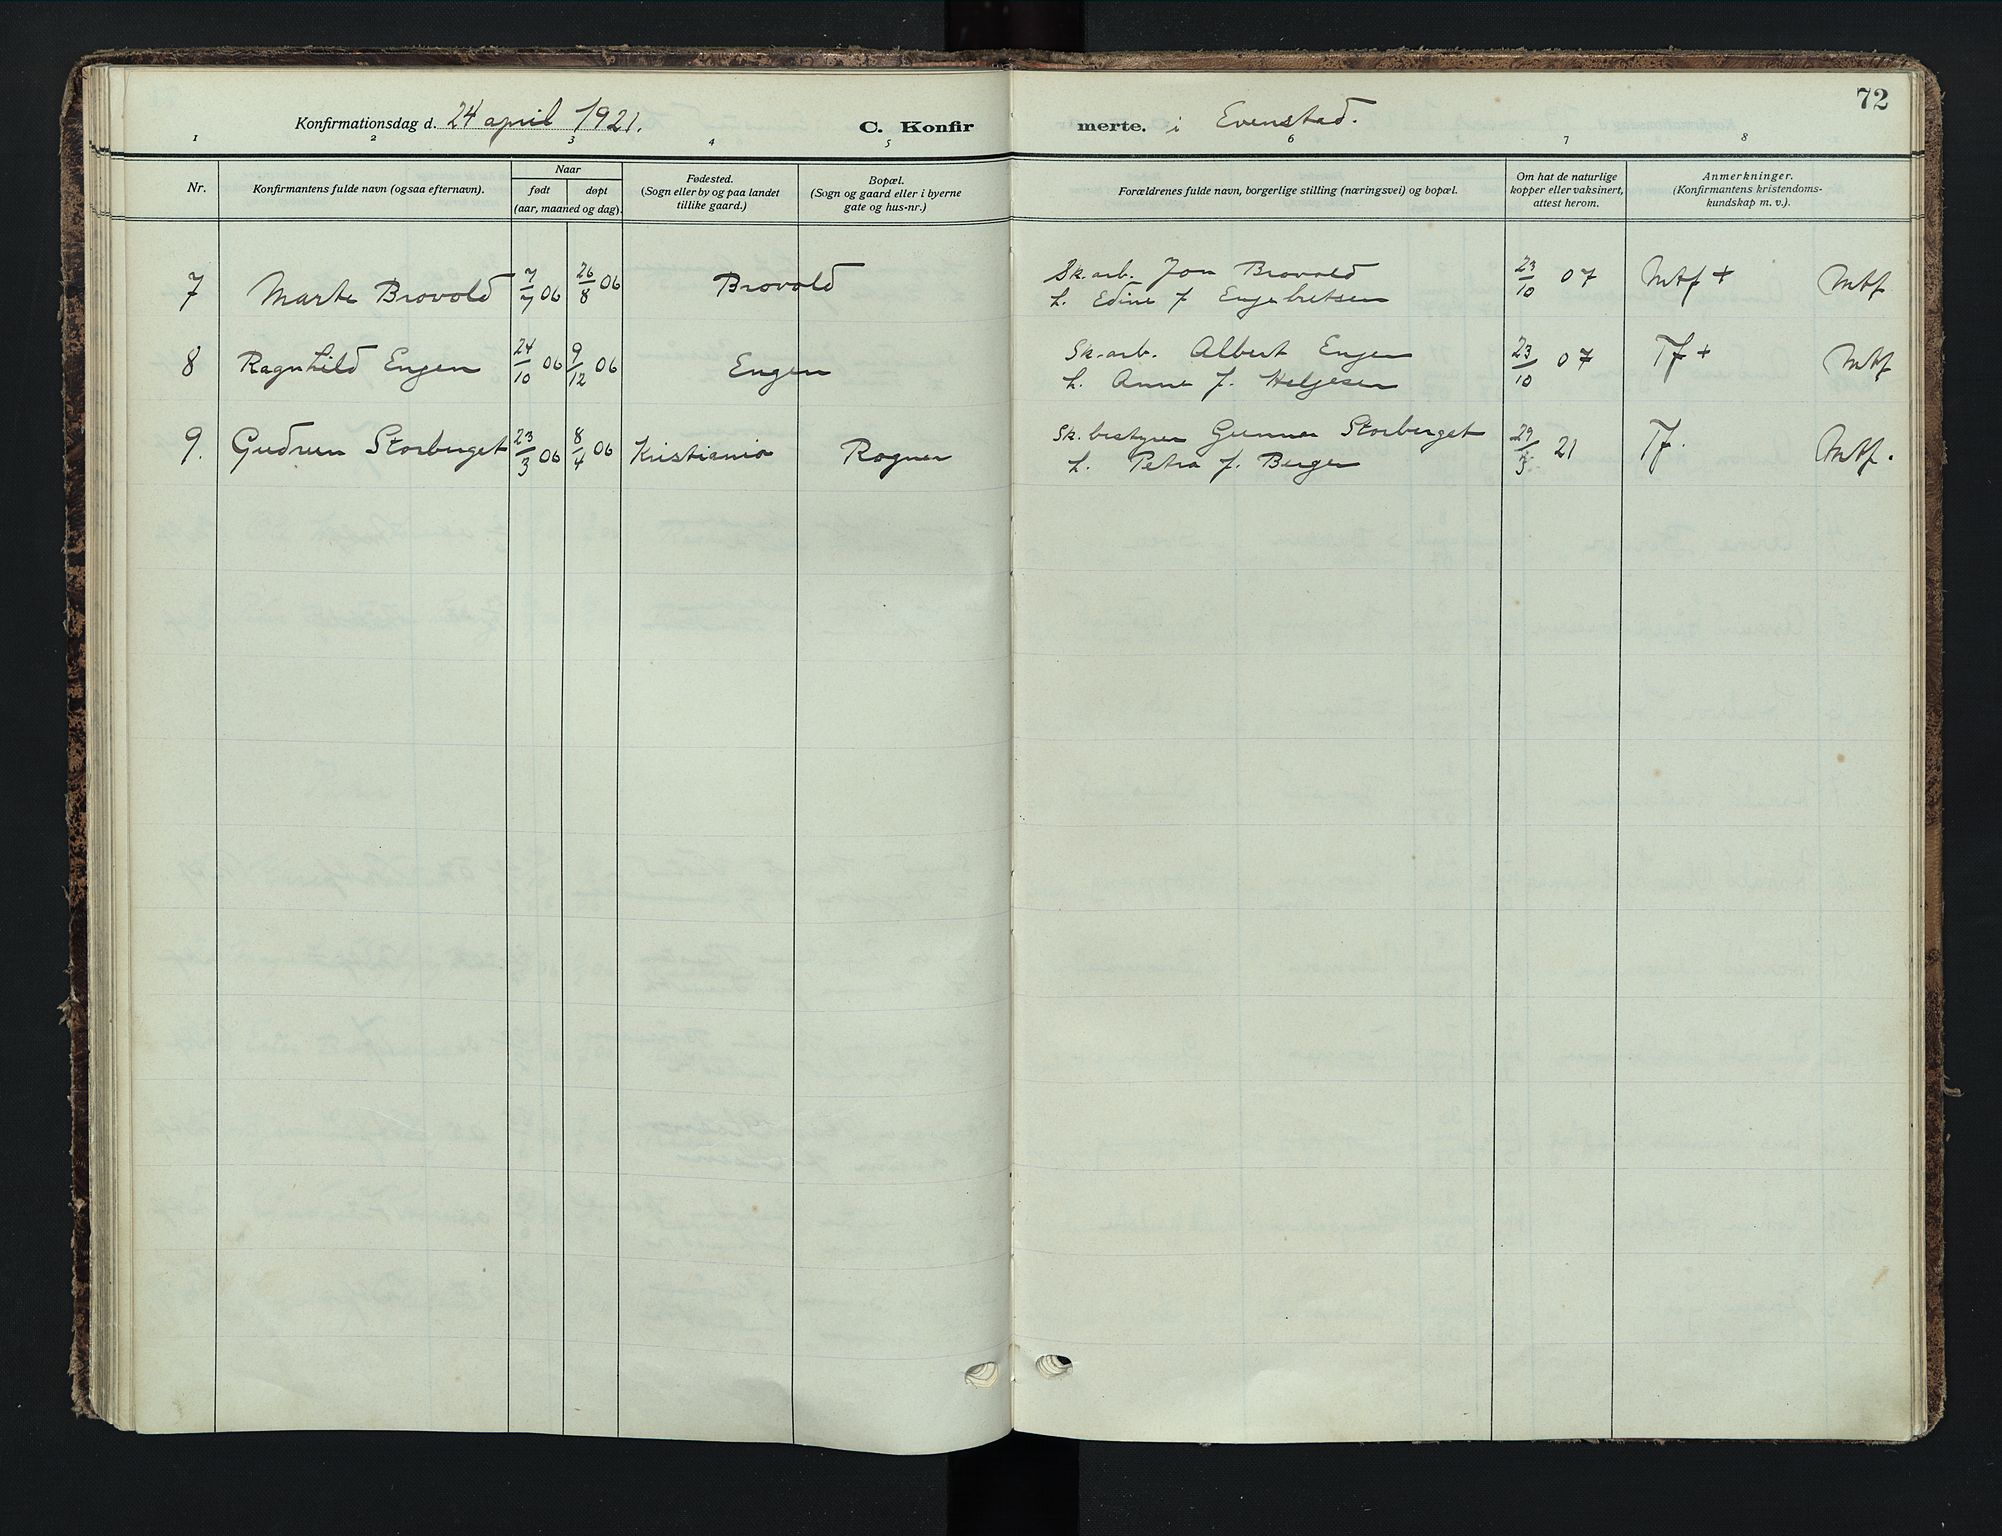 72
Konfirmationsdag d. 24 april 1921. C. Konfirmerte. i Evenstad.
1 2 3 4 5 6 7 8
Nr. Konfirmantens fulde navn (ogsaa efternavn). Naar født døpt (aar, maaned og dag). Fødested. (Sogn eller by og paa landet tillike gaard.) Bopæl. (Sogn og gaard eller i byerne gate og hus-nr.) Forældrenes fulde navn, borgerlige stilling (næringsvei) og bopæl. Om hat de naturlige kopper eller vaksinert, attest herom. Anmerkninger. (Konfirmantens kristendomskundskap m. v.).
7 Marte Brovold 7/7 06 26/8 06 Brovold Sk.arb. Jon Brovold 23/10 07 Mtf + Mtf
h. Edine f Engebretsen
8 Ragnhild Engen 24/10 06 9/12 06 Engen Sk.arb. Albert Engen 23/10 07 Tf + Mtf
h. Anne f. Helgesen
9. Gudrun Storberget 23/3 06 8/4 06 Kristiania Rogner Sk.bestyrer Gunnar Storberget 29/3 21 Tf. Mtf.
h. Petra f. Berger